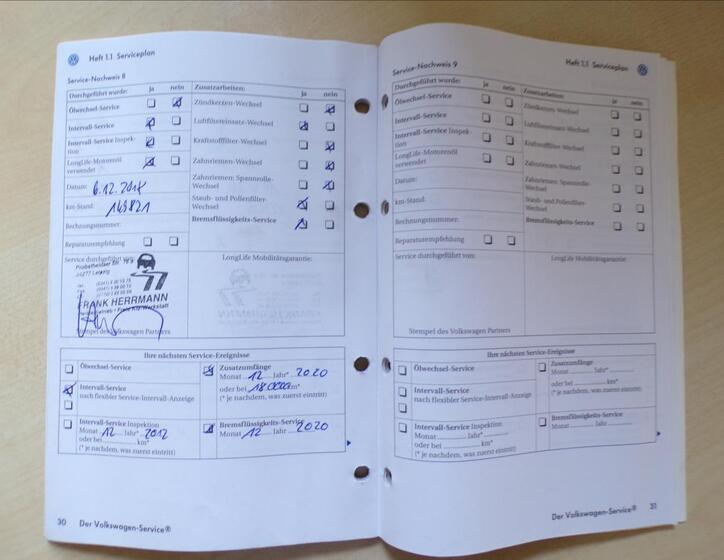 Heft 1.1 Serviceplan
Service-Nachweis 8
Durchgeführt wurde: ja nein
Ölwechsel-Service
Intervall-Service
Intervall-Service Inspek-
tion
LongLife-Motorenöl
verwendet
Datum: 6.12.
km-Stand:
Rechnungsnummer:
Reparaturempfehlung
Zusatzarbeiten: ja nein
Zündkerzen-Wechsel
Luftfiltereinsatz-Wechsel
Kraftstofffilter-Wechsel
Zahnriemen-Wechsel
Zahnriemen: Spannrolle-
Wechsel
Staub- und Pollenfilter-
Wechsel
Bremsflüssigkeits-Service
Service durchgeführt von:
LongLife Mobilitätsgarantie:
Leipzig
FRANK HERRMANN
Stempel des Volkswagen Partners
Ihre nächsten Service-Ereignisse
Ölwechsel-Service
Intervall-Service
nach flexibler Service-Intervall-Anzeige
Intervall-Service Inspektion
Monat 12 Jahr*
oder bei km*
(* je nachdem, was zuerst eintritt)
Zusatzumfänge
Monat 12 Jahr* 2020
oder bei km*
(* je nachdem, was zuerst eintritt)
Bremsflüssigkeits-Service
Monat 12 Jahr 2020
30 Der Volkswagen-Service®
Heft 1.1 Serviceplan
Service-Nachweis 9
Durchgeführt wurde: ja nein
Ölwechsel-Service
Intervall-Service
Intervall-Service Inspek-
tion
LongLife-Motorenöl
verwendet
Datum:
km-Stand:
Rechnungsnummer:
Reparaturempfehlung
Zusatzarbeiten: ja nein
Zündkerzen-Wechsel
Luftfiltereinsatz-Wechsel
Kraftstofffilter-Wechsel
Zahnriemen-Wechsel
Zahnriemen: Spannrolle-
Wechsel
Staub- und Pollenfilter-
Wechsel
Bremsflüssigkeits-Service
Service durchgeführt von:
LongLife Mobilitätsgarantie:
Stempel des Volkswagen Partners
Ihre nächsten Service-Ereignisse
Ölwechsel-Service
Intervall-Service
nach flexibler Service-Intervall-Anzeige
Intervall-Service Inspektion
Monat Jahr*
oder bei km*
(* je nachdem, was zuerst eintritt)
Zusatzumfänge
Monat Jahr*
oder bei km*
(* je nachdem, was zuerst eintritt)
Bremsflüssigkeits-Service
Monat Jahr
Der Volkswagen-Service® 31